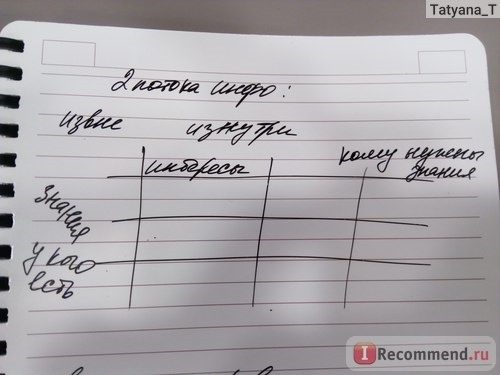 Tatyana_T
2 потока инфо:
извне изнутри
интересы кому нужены
знания
знания
у кого
есть
I Recommend.ru